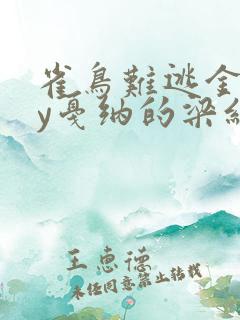 雀鳥難逃金
y戛纳的梁組
王惠德
未经同意禁止转载